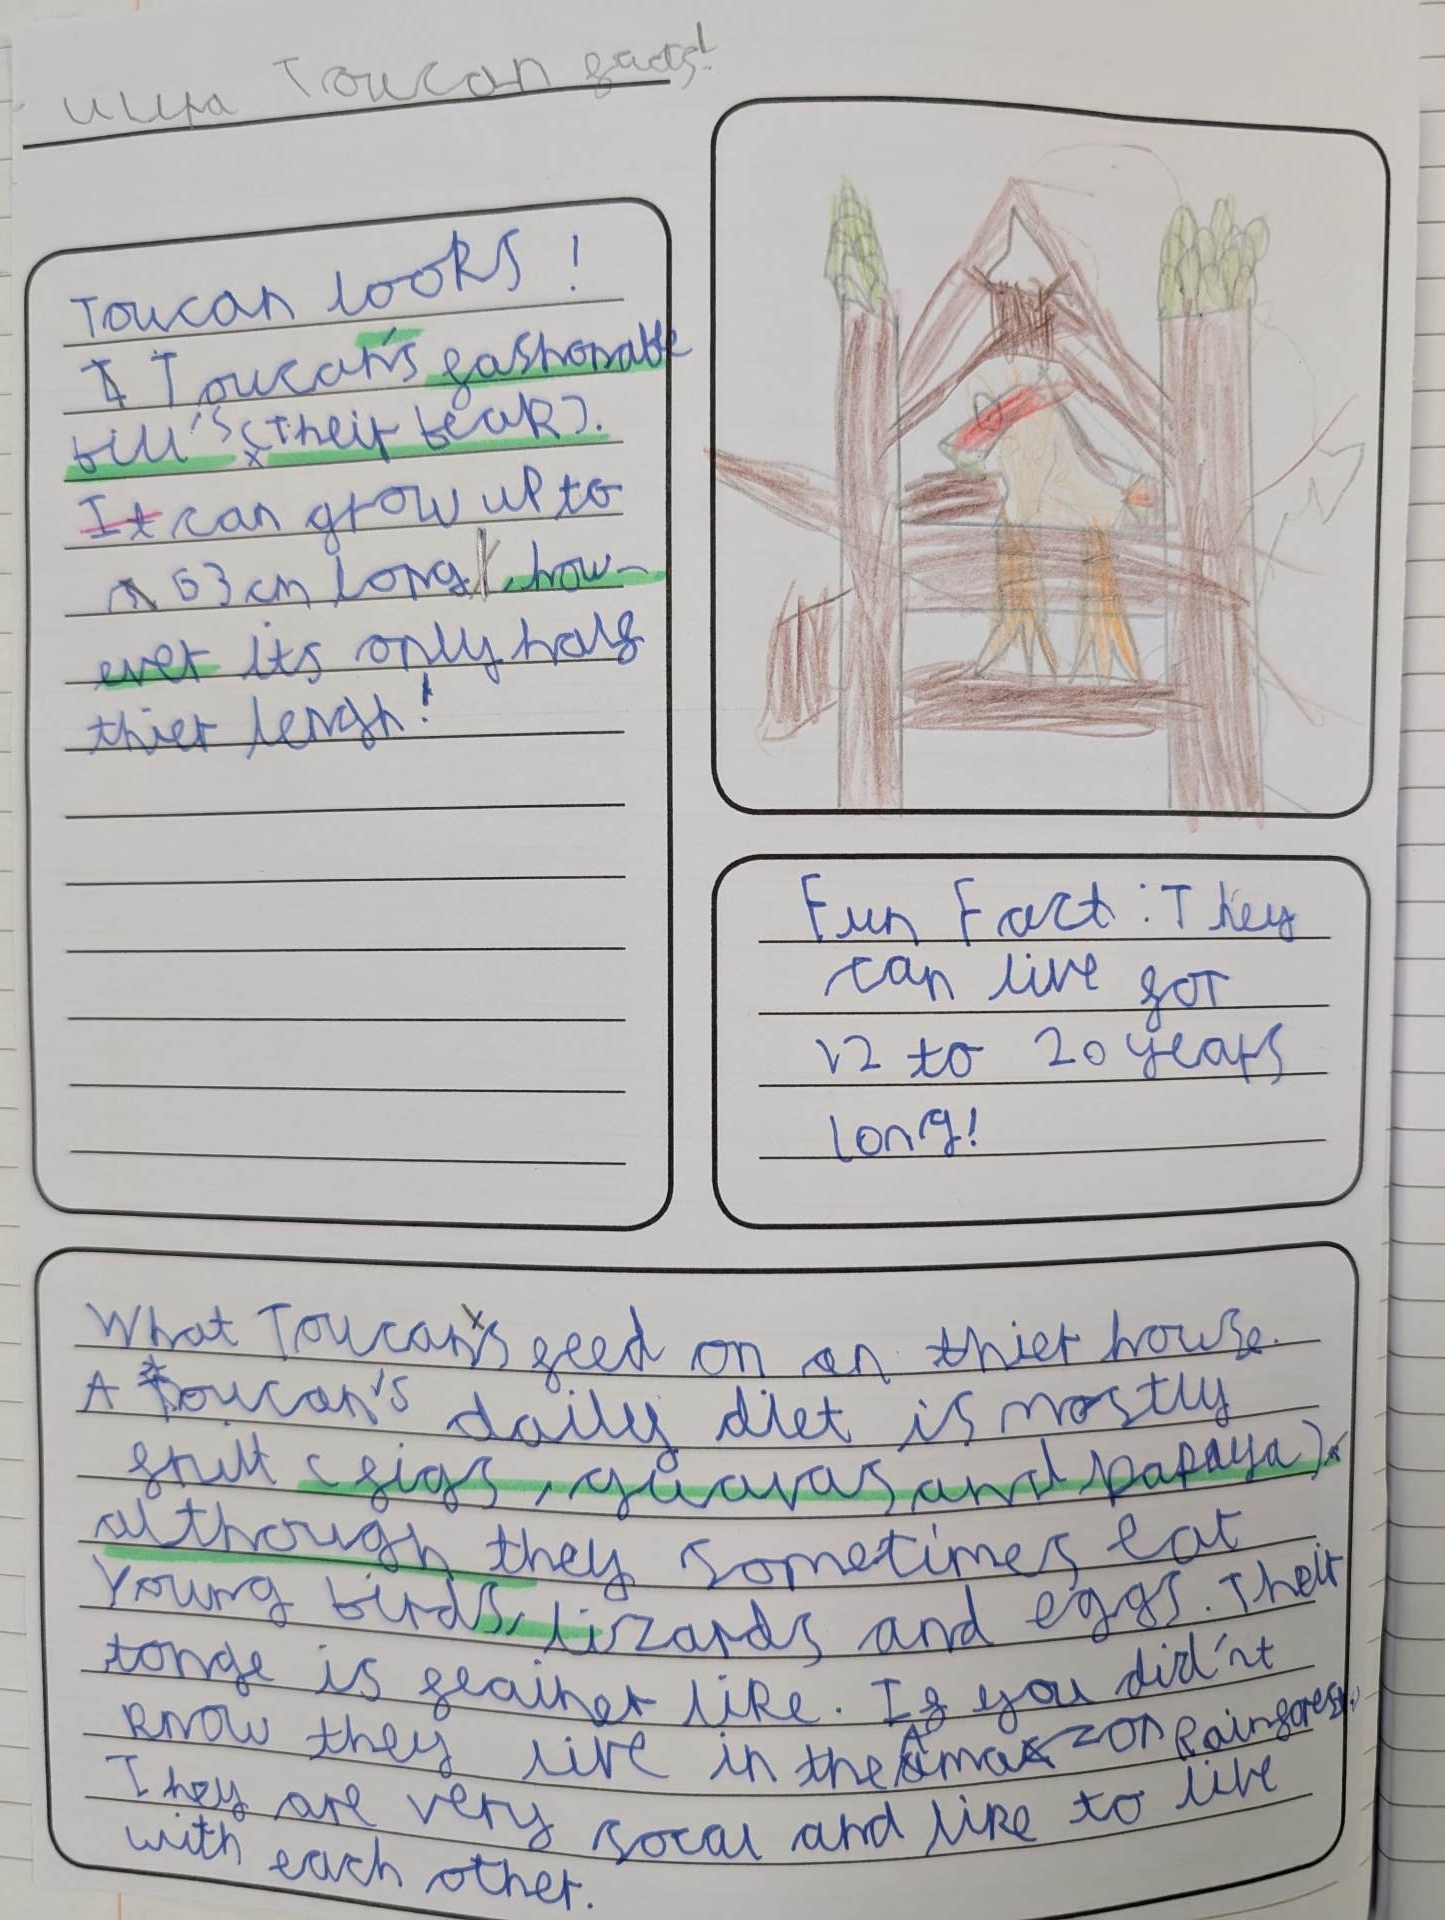 Ultra Toucan facts!
Toucan looks!
Toucan's fashonable
bill's (their beak).
It can grow up to
63cm long, how-
ever its only half
thier lengh!
Fun Fact: They
can live for
12 to 20 years
long!
What Toucan's feed on an thier house.
A Toucan's daily diet is mostly
fruit (figs, guavas and papaya).
although they sometimes eat
young birds, lizzards and eggs. Their
tonge is feather like. If you did'nt
know they live in the Amazon Rainforest.
They are very socal and like to live
with each other.